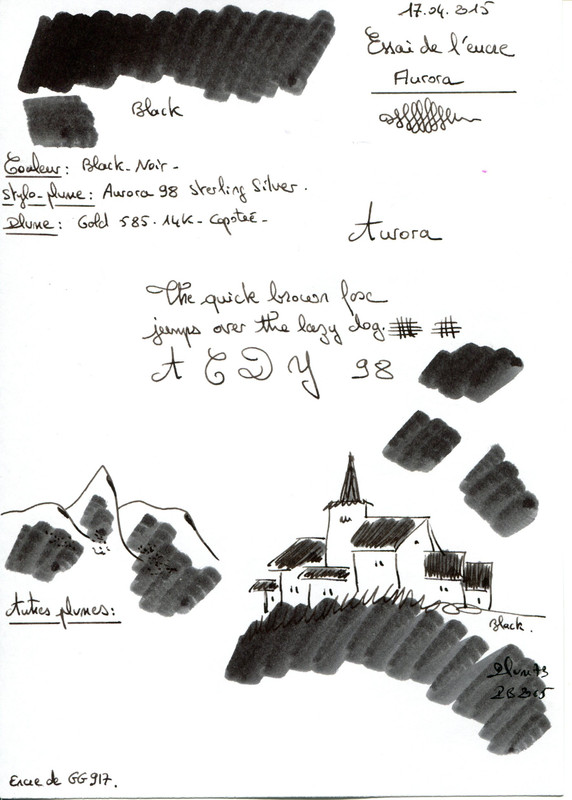 17.04.2015
Essai de l'encre
Aurora
Black
Couleur: Black-Noir-
Stylo-plume: Aurora 98 Sterling Silver.
Plume: Gold 585.14K-Capoteé-
Aurora
The quick brown fox
jumps over the lazy dog.
A C D Y 98
Autres plumes:
Black.
Plum43
PB2015
Encre de GG917.